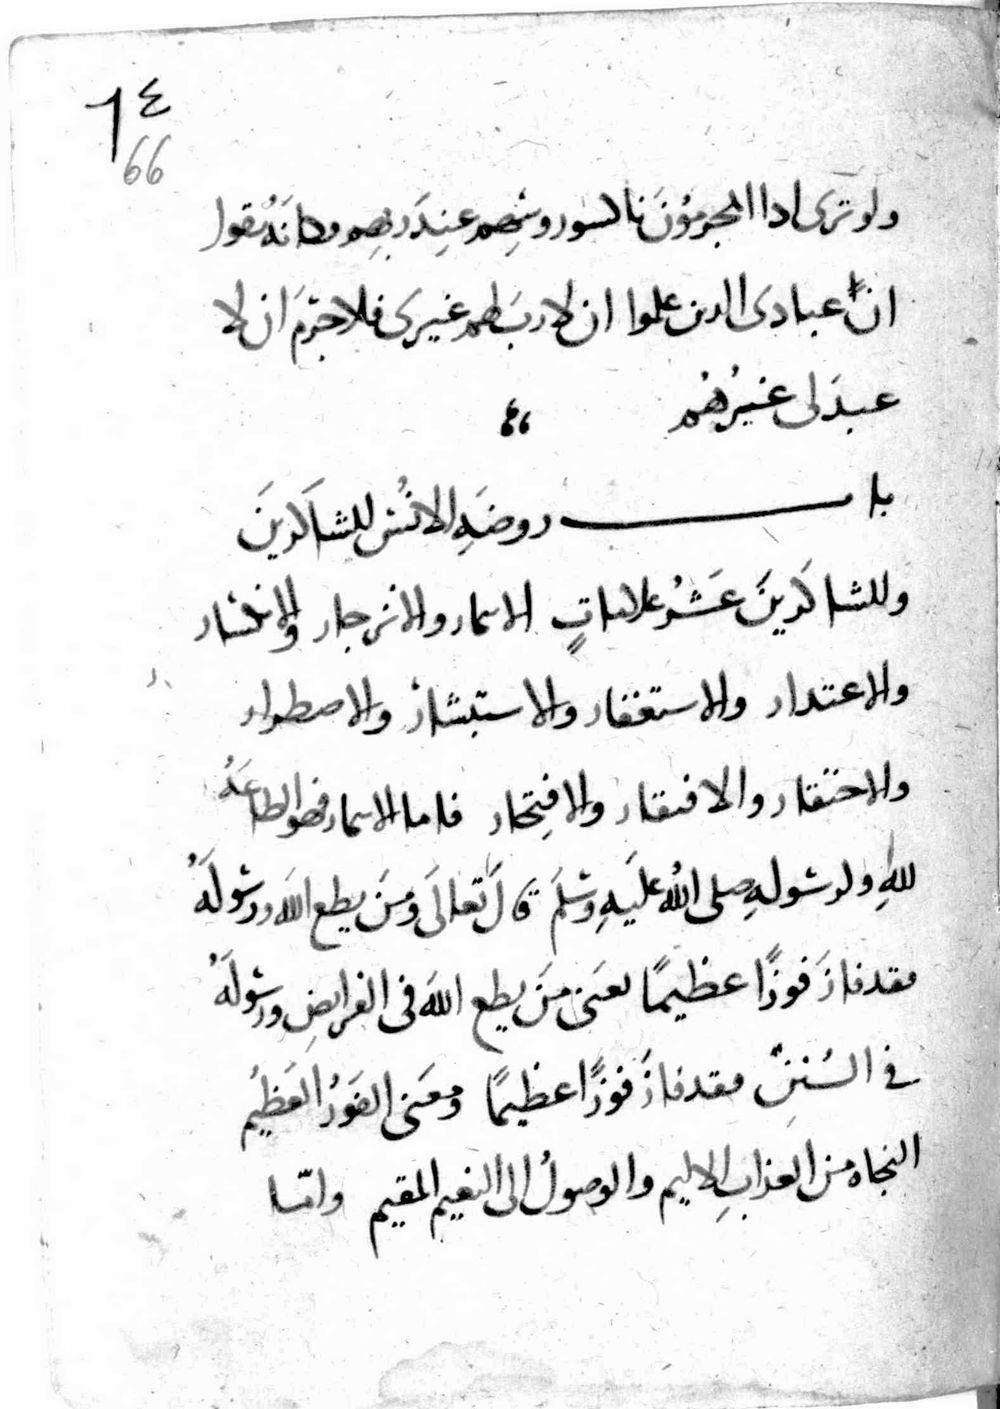 ٦٤
66
ولو ترى ادا المجرمون ناكسو روسهم عند ربهم وكانه يقول
ان عبادى الدين علموا ان لا رب لهم غيرى فلا جرم ان لا
عبد لى غيرهم
باب روضه الانس للشاكرين
وللشاكرين عشر علامات الاتمار والانزجار والانكسار
والاعتدار والاستغفار والاستبشار والاصطرار
والاحتقار والافتقار والافتخار فاما الاتمار فهو الطاعه
لله ولرسوله صلى الله عليه وسلم قال تعالى ومن يطع الله ورسوله
فقد فاز فوزًا عظيمًا يعنى من يطع الله فى الفرايض ورسوله
فى السنن فقد فاز فوزًا عظيمًا ومعنى الفوز العظيم
النجاه من العذاب الاليم والوصول الى النعيم المقيم وامّا